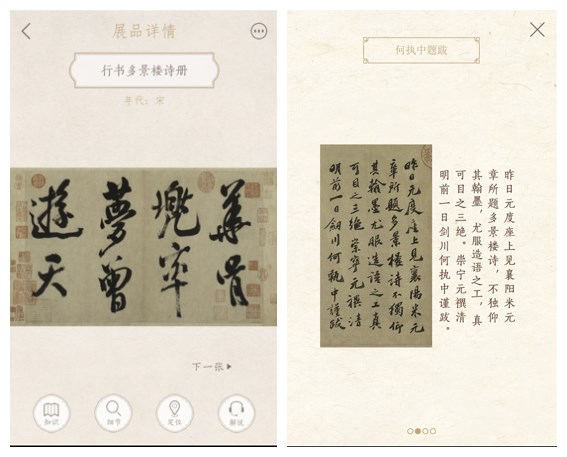 展品详情
行书多景楼诗册
年代：宋
華胥
兠率
夢曾
遊天
下一张
知识
细节
定位
解说
何执中题跋
昨日元度座上見襄陽米元
章所題多景樓詩不獨仰
其翰墨尤服造語之工真
可目之三絶崇寧元禩清
明前一日劍川何執中謹跋
昨日元度座上见襄阳米元
章所题多景楼诗，不独仰
其翰墨，尤服造语之工，真
可目之三绝。崇宁元禩清
明前一日剑川何执中谨跋。